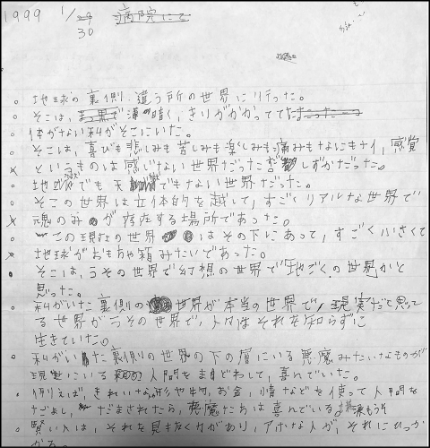 1999 1/29 病院にて
30
。地球の裏側、違う所の世界に行った。
。そこは、真黒で薄暗く、きりがかかってて
。体がない私がそこにいた。
。そこは、喜びも悲しみも苦しみも楽しみも痛みもなにもナイ、感覚
というものは感じない世界だった しずかだった。
。地獄でも天 でもない世界だった。
。そこの世界は立体的を越して、すごくリアルな世界で
× 魂のみ が存在する場所であった。
。この現在の世界 はその下にあって、すごく小さくて
地球がおもちゃ箱みたいであった。
。そこは、うその世界で幻想の世界で地ごくの世界かと
思った。
。私がいた裏側の 世界が本当の世界で、現実だと思って
る世界がうその世界で、人々はそれを知らずに
生きていた。
。私がいた裏側の世界の下の層にいる悪魔みたいなものが
現世にいる 人間をまどわして、喜んでいた。
。例えば、きれいな 物、お金、情などを使って人間を
だまされたら、悪魔たちは喜んでいる
。賢い人は、それを見抜く力があり、 人が、それにひっか
かる。